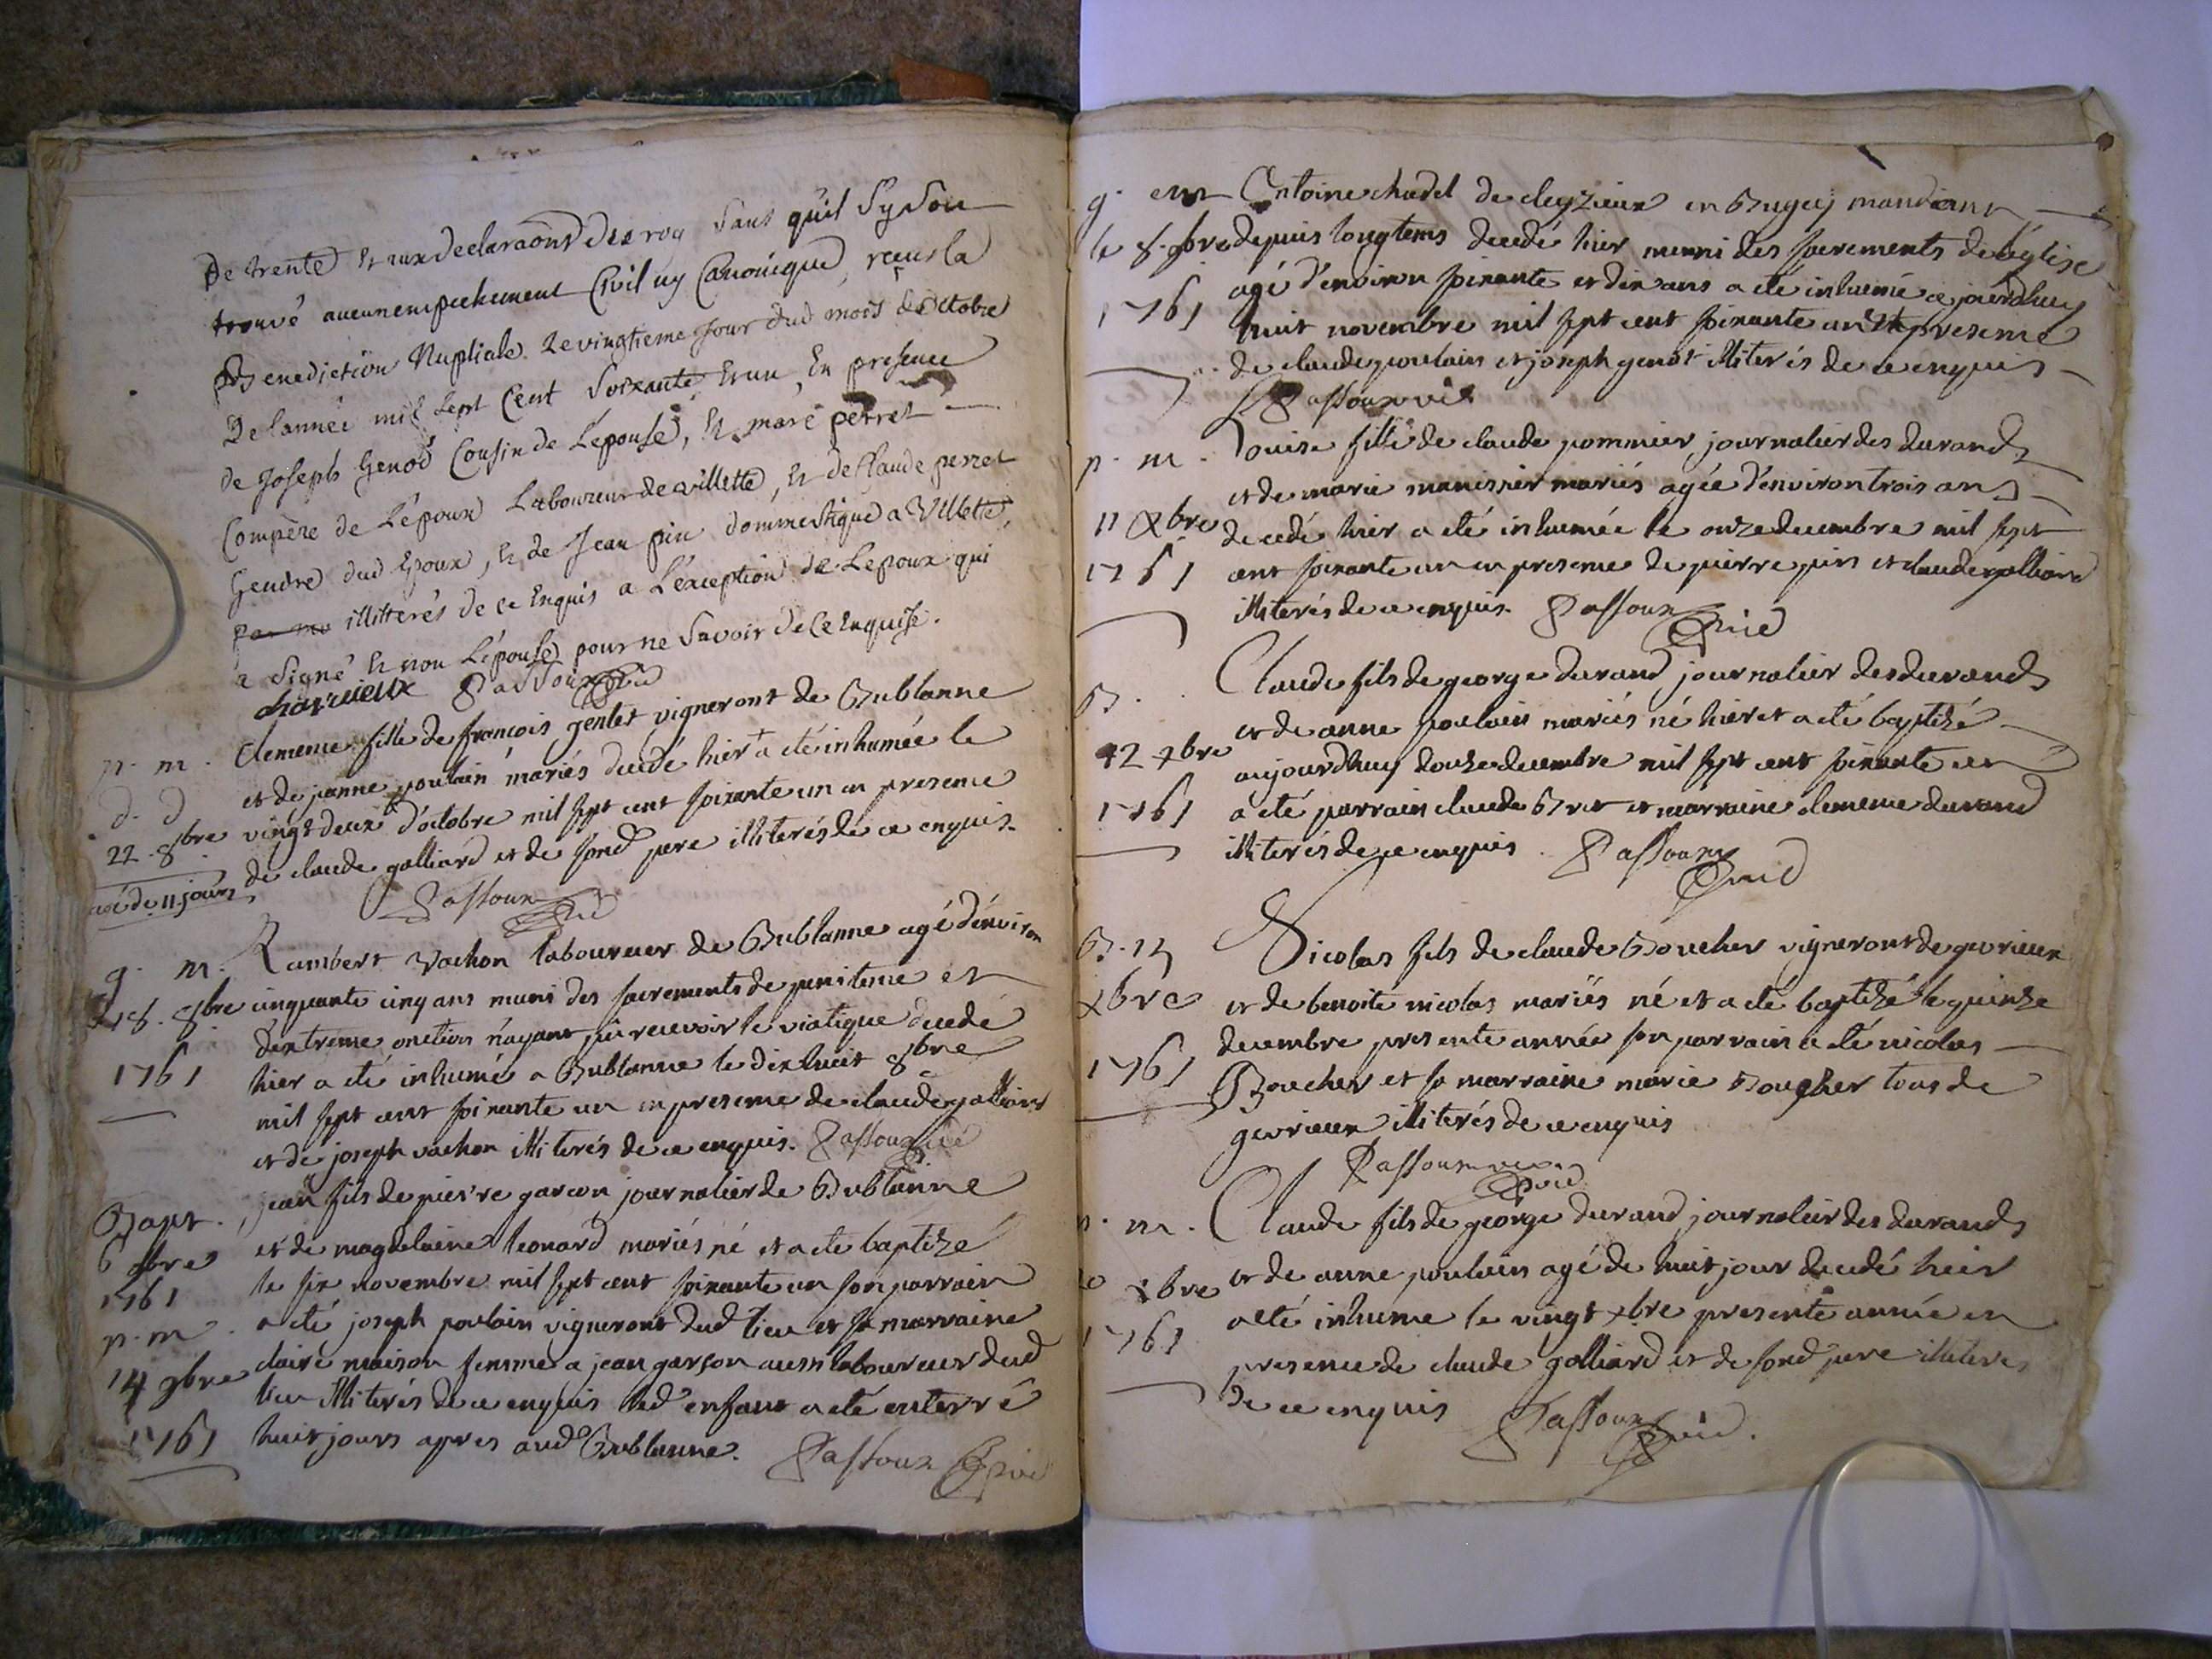 De trente et aux declaraôns du roy Sans qu'il Sy Soit
trouvé aucun empechement Civil ny Canonique, reçus la
Benediction Nuptiale. Le vingtieme jour dud mois d'octobre
De lannée mil sept Cent Soixante et un, En presence
de Joseph Genod Cousin de Lépouse, Et marc perret
Compère de Lépoux Laboureur de villette, Et de Claude perret
Gendre dud Epoux, Et de Jean pin dommestique a Villette,
illitterés de ce Enquis a L'exception de Lepoux qui
a Signé Et non Lépouse pour ne Savoir de ce Enquise.
charvieux Passoux vic
p. m. Clemence fille de françois genlet vigneront de Bublanne
d. d et de janne poulain mariés decedé hier + a eté inhumée le
22 8bre vingt deux d'octobre mil sept cent soixante un en presence
+ agé de 11 jours de claude galliard et de sond pere illiterés de ce enquis.
Passoux vic
g. m. Rambert Vachon laboureur de Bublanne agé d'environ
18. 8bre cinquante cinq ans muni des sacrements de penitence et
d'extreme onction n'ayant pû recevoir le viatique decedé
1761 hier a eté inhumé a Bublanne le dix huit 8bre
mil sept cent soixante un en presence de claude galliard
et de joseph vachon illiterés de ce enquis. Passoux vic
Bapt. jean fils de pierre garçon journalier de Bublanne
6 9bre et de magdelaine leonard mariés né et a eté baptizé
1761 le six novembre mil sept cent soixante un son parrain
p. m. a eté joseph poulain vigneront dud lieu et sa marraine
14 9bre claire maison femme a jean garçon aussi laboureur dud
lieu illiterés de ce enquis led enfant a eté enterré
1761 huit jours apres aud Bublanne. Passoux vic
g. m Antoine chadel de cleyzieux en Bugey mandiant
le 8. 9bre depuis longtems decedé hier muni des sacrements de léglise
1761 agé d'environ soixante et dix ans a eté inhumé ce jourdhuy
huit novembre mil sept cent soixante un en presence
de claude poulain et joseph genod illiterés de ce enquis
Passoux vic
p. m. Louise fille de claude pommier journalier des durands
et de marie manissier mariés agée d'environ trois ans
11 Xbre decedé hier a eté inhumée le onze decembre mil sept
1761 cent soixante un en presence de pierre pin et claude galliard
illiterés de ce enquis. Passoux vic
B. Claude fils de george durand journalier des durands
et de anne poulain mariés né hier et a eté baptizé
12 xbre aujourdhuy douze decembre mil sept cent soixante un
1761 a eté parrain claude Bret et marraine clemence durand
illiterés de ce enquis. Passoux vic
B. 15 Nicolas fils de claude Boucher vigneront de gevrieux
xbre et de benoite nicolas mariés né et a eté baptizé le quinze
decembre presente année son parrain a eté nicolas
1761 Boucher et sa marraine marie Boucher tous de
gevrieux illiterés de ce enquis
Passoux vic
p. m. Claude fils de george durand journalier des durands
20 xbre et de anne poulain agé de huit jour decedé hier
1761 a eté inhumé le vingt xbre presente année en
presence de claude galliard et de sond pere illiterés
de ce enquis Passoux vic.